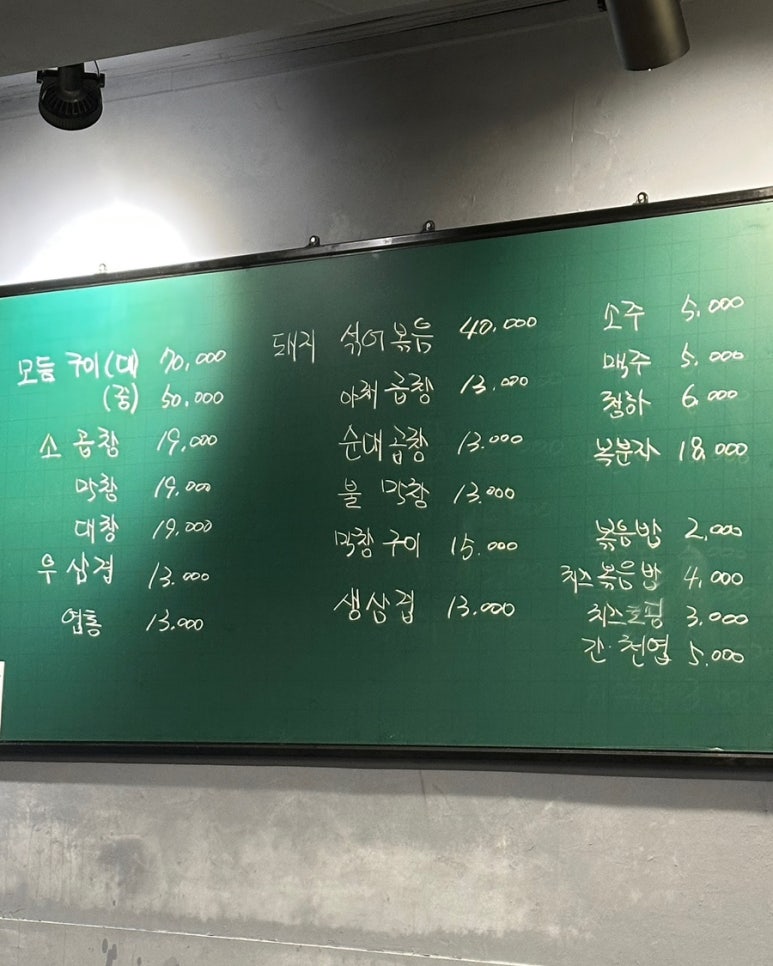 모듬 구이(대) 70,000
(중) 50,000
소 곱창 19,000
막창 19,000
대창 19,000
우삼겹 13,000
염통 13,000
돼지 섞어볶음 40,000
야채곱창 13,000
순대곱창 13,000
불 막창 13,000
막창구이 15,000
생삼겹 13,000
소주 5,000
맥주 5,000
청하 6,000
복분자 18,000
볶음밥 2,000
치즈볶음밥 4,000
치즈토핑 3,000
간·천엽 5,000